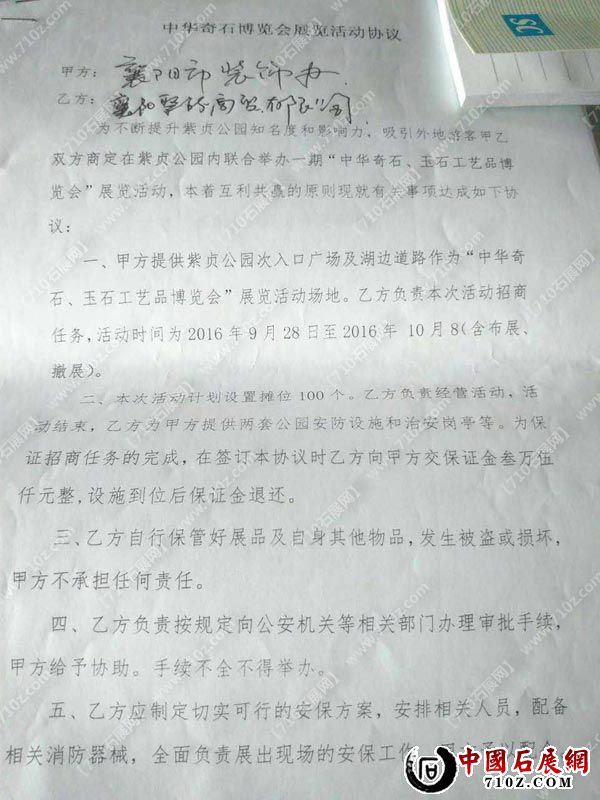 中华奇石博览会展览活动协议
甲方：襄阳市装饰办
乙方：襄阳商贸有限公司
为不断提升紫贞公园知名度和影响力，吸引外地游客甲乙
双方商定在紫贞公园内联合举办一期“中华奇石、玉石工艺品博
览会”展览活动，本着互利共赢的原则现就有关事项达成如下协
议：
一、甲方提供紫贞公园次入口广场及湖边道路作为“中华奇
石、玉石工艺品博览会”展览活动场地。乙方负责本次活动招商
任务，活动时间为2016年9月28日至2016年 10月8(含布展、
撤展)。
二、本次活动计划设置摊位100个。乙方负责经营活动，活
动结束，乙方为甲方提供两套公园安防设施和治安岗亭等。为保
证招商任务的完成，在签订本协议时乙方向甲方交保证金叁万伍
仟元整，设施到位后保证金退还。
三、乙方自行保管好展品及自身其他物品，发生被盗或损坏，
甲方不承担任何责任。
四、乙方负责按规定向公安机关等相关部门办理审批手续，
甲方给予协助。手续不全不得举办。
五、乙方应制定切实可行的安保方案，安排相关人员，配备
相关消防器械，全面负责展出现场的安保工作
中國石展網
710Z.COM